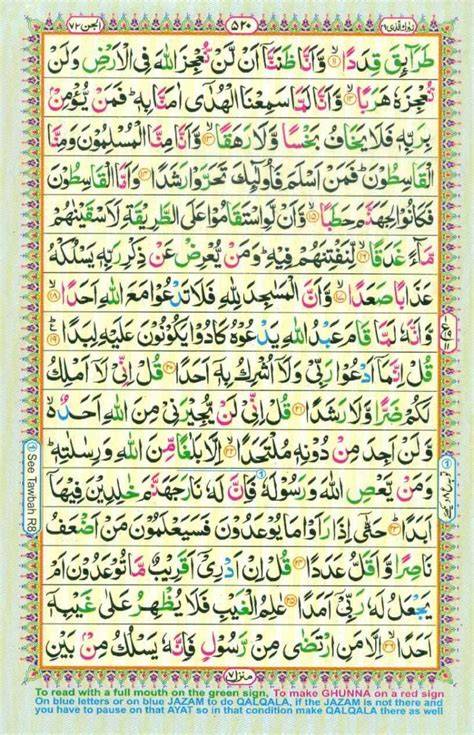 تبٰرك الذی ۲۹ ۵۲۰ الجن ۷۲
طَرَآئِقَ قِدَدًا ۝۱۱ وَّاَنَّا ظَنَنَّاۤ اَنْ لَّنْ نُّعْجِزَ اللّٰهَ فِی الْاَرْضِ وَلَنْ
نُّعْجِزَهٗ هَرَبًا ۝۱۲ وَّاَنَّا لَمَّا سَمِعْنَا الْهُدٰۤی اٰمَنَّا بِهٖ ؕ فَمَنْ یُّؤْمِنْۢ
بِرَبِّهٖ فَلَا یَخَافُ بَخْسًا وَّلَا رَهَقًا ۝۱۳ وَّاَنَّا مِنَّا الْمُسْلِمُوْنَ وَمِنَّا
الْقٰسِطُوْنَ ؕ فَمَنْ اَسْلَمَ فَاُولٰٓئِكَ تَحَرَّوْا رَشَدًا ۝۱۴ وَاَمَّا الْقٰسِطُوْنَ
فَكَانُوْا لِجَهَنَّمَ حَطَبًا ۝۱۵ وَّاَنْ لَّوِ اسْتَقَامُوْا عَلَی الطَّرِیْقَةِ لَاَسْقَیْنٰهُمْ
مَّآءً غَدَقًا ۝۱۶ لِّنَفْتِنَهُمْ فِیْهِ ؕ وَمَنْ یُّعْرِضْ عَنْ ذِكْرِ رَبِّهٖ یَسْلُكْهُ
عَذَابًا صَعَدًا ۝۱۷ وَّاَنَّ الْمَسٰجِدَ لِلّٰهِ فَلَا تَدْعُوْا مَعَ اللّٰهِ اَحَدًا ۝۱۸
وَّاَنَّهٗ لَمَّا قَامَ عَبْدُ اللّٰهِ یَدْعُوْهُ كَادُوْا یَكُوْنُوْنَ عَلَیْهِ لِبَدًا ۝۱۹
قُلْ اِنَّمَاۤ اَدْعُوْا رَبِّیْ وَلَاۤ اُشْرِكُ بِهٖۤ اَحَدًا ۝۲۰ قُلْ اِنِّیْ لَاۤ اَمْلِكُ
لَكُمْ ضَرًّا وَّلَا رَشَدًا ۝۲۱ قُلْ اِنِّیْ لَنْ یُّجِیْرَنِیْ مِنَ اللّٰهِ اَحَدٌ ۙ۬
وَّلَنْ اَجِدَ مِنْ دُوْنِهٖ مُلْتَحَدًا ۝۲۲ اِلَّا بَلٰغًا مِّنَ اللّٰهِ وَرِسٰلٰتِهٖ ؕ
وَمَنْ یَّعْصِ اللّٰهَ وَرَسُوْلَهٗ فَاِنَّ لَهٗ نَارَ جَهَنَّمَ خٰلِدِیْنَ فِیْهَاۤ
اَبَدًا ۝۲۳ حَتّٰۤی اِذَا رَاَوْا مَا یُوْعَدُوْنَ فَسَیَعْلَمُوْنَ مَنْ اَضْعَفُ
نَاصِرًا وَّاَقَلُّ عَدَدًا ۝۲۴ قُلْ اِنْ اَدْرِیْۤ اَقَرِیْبٌ مَّا تُوْعَدُوْنَ اَمْ
یَجْعَلُ لَهٗ رَبِّیْۤ اَمَدًا ۝۲۵ عٰلِمُ الْغَیْبِ فَلَا یُظْهِرُ عَلٰی غَیْبِهٖۤ
اَحَدًا ۝۲۶ اِلَّا مَنِ ارْتَضٰی مِنْ رَّسُوْلٍ فَاِنَّهٗ یَسْلُكُ مِنْۢ بَیْنِ
① See Tawbah R8
منزل ۷
To read with a full mouth on the green sign, To make GHUNNA on a red sign
On blue letters or on blue JAZAM to do QALQALA, if the JAZAM is not there and
you have to pause on that AYAT so in that condition make QALQALA there as well